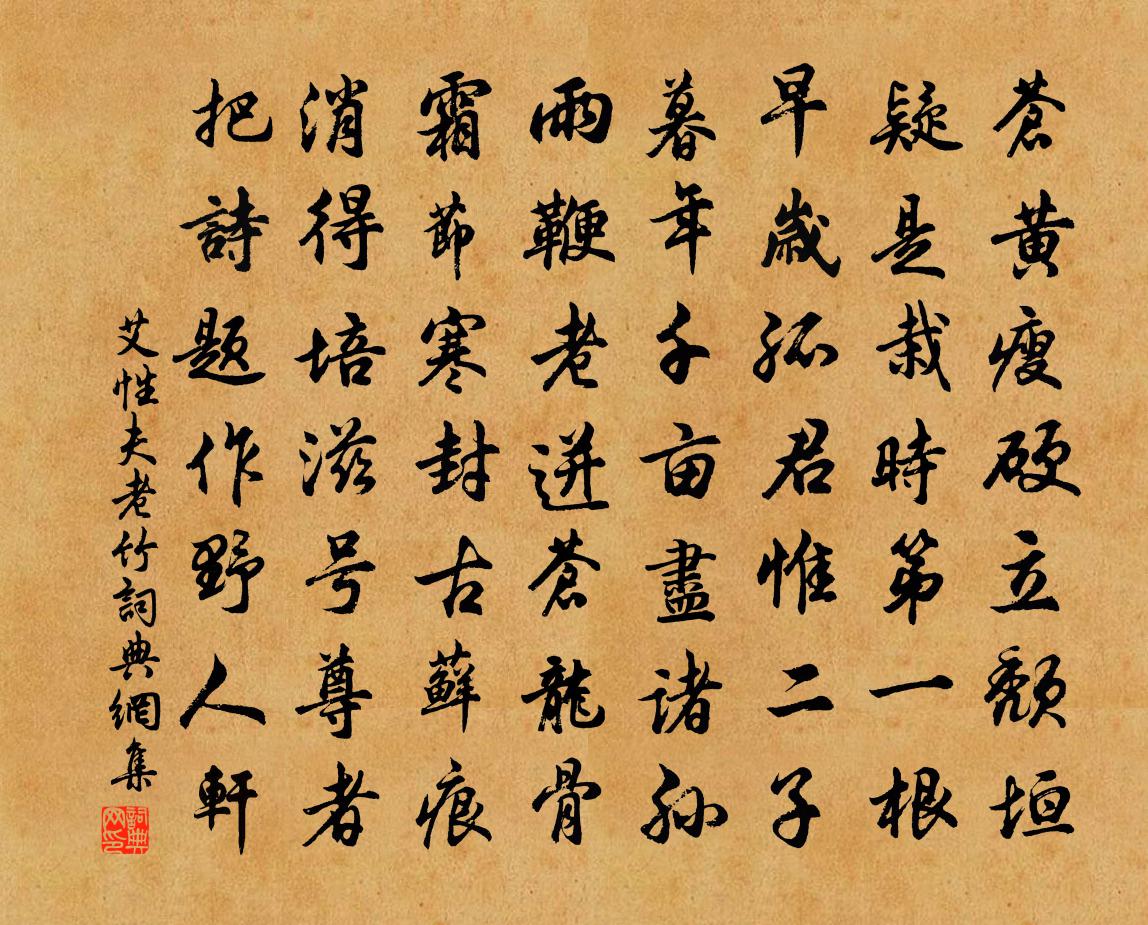 蒼黃瘦硬立頹垣
疑是栽時第一根
早歲孤君惟二子
暮年千亩盡諸孙
雨鞭老迸蒼龍骨
霜節寒封古蘚痕
消得培滋号尊者
把詩题作野人軒
艾性夫老竹詞典網集
詞典网印